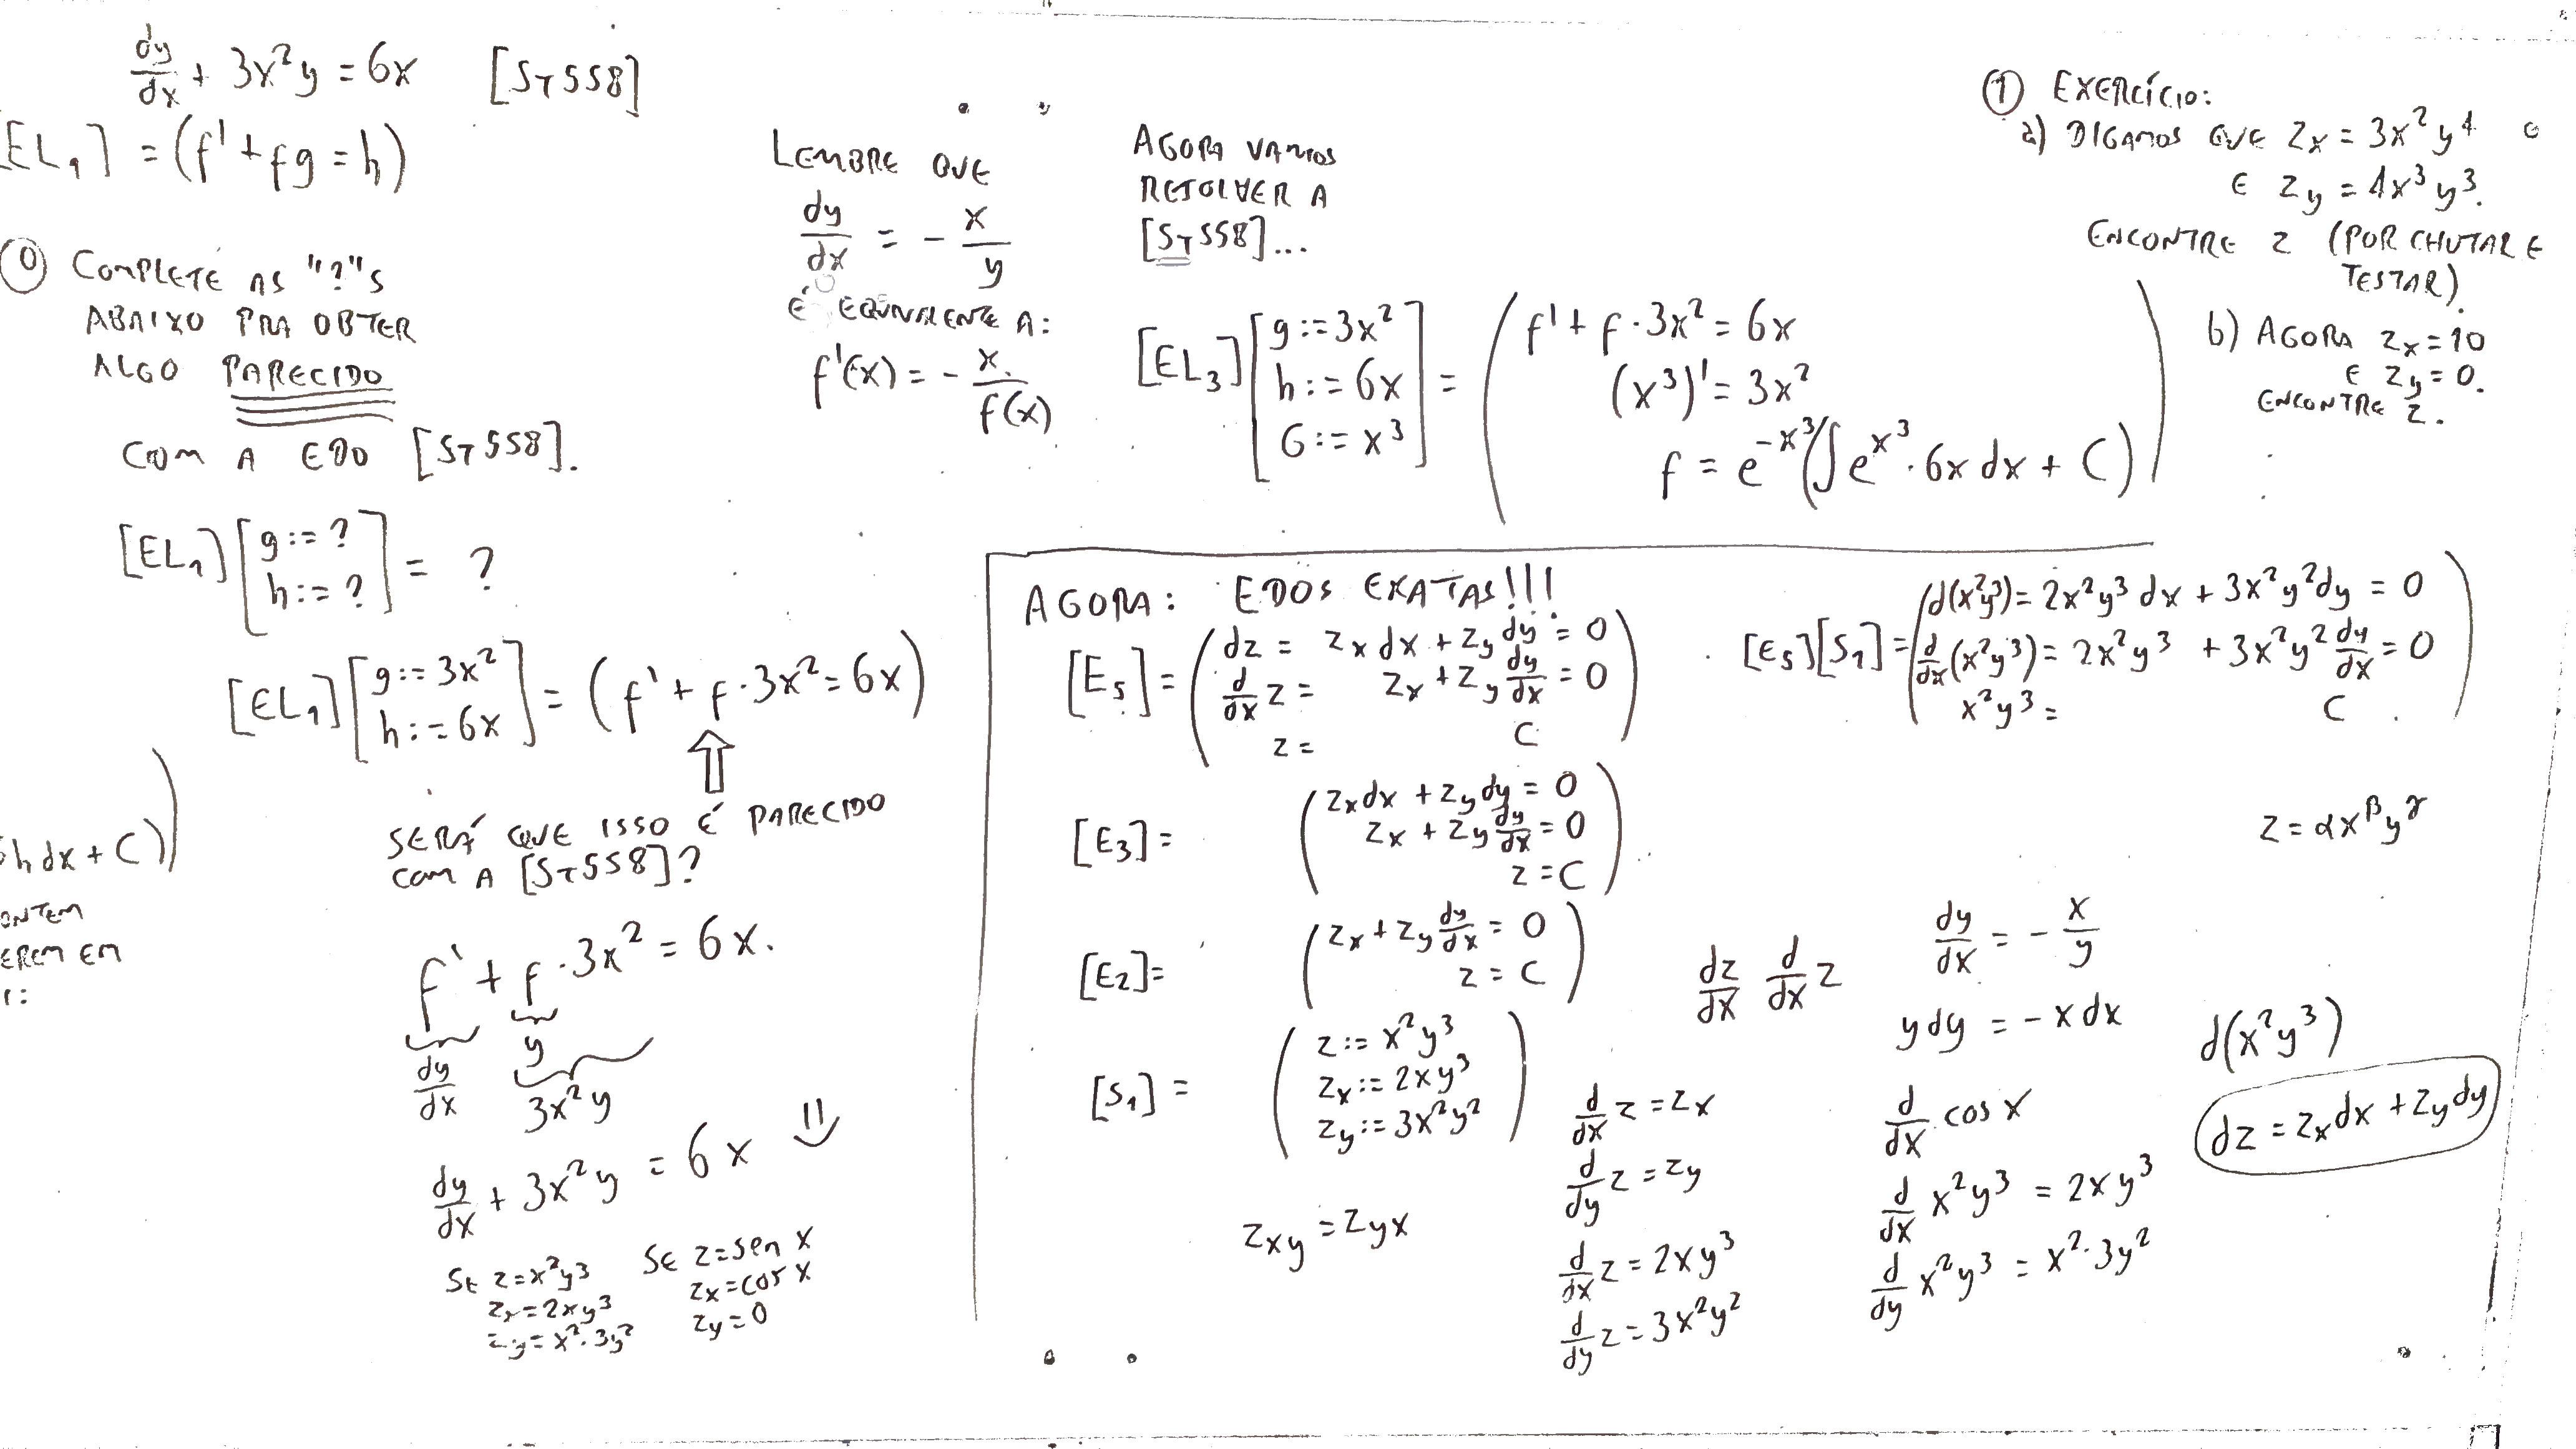 dy/dx + 3x²y = 6x [ST558]
[EL₁] = (f' + fg = h)
⓪ COMPLETE AS "?"S
ABAIXO PRA OBTER
ALGO PARECIDO
COM A EDO [ST558].
[EL₁] [g := ? h := ?] = ?
[EL₁] [g := 3x² h := 6x] = (f' + f·3x² = 6x)
⇑
SERÁ QUE ISSO É PARECIDO
COM A [ST558]?
f' + f·3x² = 6x.
dy/dx y
3x²y
dy/dx + 3x²y = 6x
SE z=x²y³
zx=2xy³
zy=x²·3y²
SE z=sen x
zx=cos x
zy=0
h dx + C)
ONTEM
EREM EM
LEMBRE QUE
dy/dx = - x/y
É EQUIVALENTE A:
f'(x) = - x/f(x).
AGORA VAMOS
RESOLVER A
[ST558]...
[EL₃] [g := 3x² h := 6x G := x³] =
(f' + f·3x² = 6x
(x³)' = 3x²
f = e^(-x³)(∫e^(x³)·6x dx + C))
① EXERCÍCIO:
a) DIGAMOS QUE zx = 3x²y⁴
E zy = 4x³y³.
ENCONTRE z (POR CHUTAR E
TESTAR).
b) AGORA zx=10
E zy=0.
ENCONTRE z.
AGORA: EDOS EXATAS!!!
[E₅] =
(dz = zx dx + zy dy = 0
d/dx z = zx + zy dy/dx = 0
z = C)
[E₅][S₁] =
(d(x²y³) = 2x²y³ dx + 3x²y² dy = 0
d/dx (x²y³) = 2x²y³ + 3x²y² dy/dx = 0
x²y³ = C)
[E₃] =
(zx dx + zy dy = 0
zx + zy dy/dx = 0
z = C)
[E₂] =
(zx + zy dy/dx = 0
z = C)
[S₁] =
(z := x²y³
zx := 2xy³
zy := 3x²y²)
zxy = zyx
z = αx^β y^γ
dz/dx d/dx z
d/dx z = zx
d/dy z = zy
d/dx z = 2xy³
d/dy z = 3x²y²
dy/dx = - x/y
y dy = - x dx
d/dx cos x
d/dx x²y³ = 2xy³
d/dy x²y³ = x²·3y²
d(x²y³)
dz = zx dx + zy dy